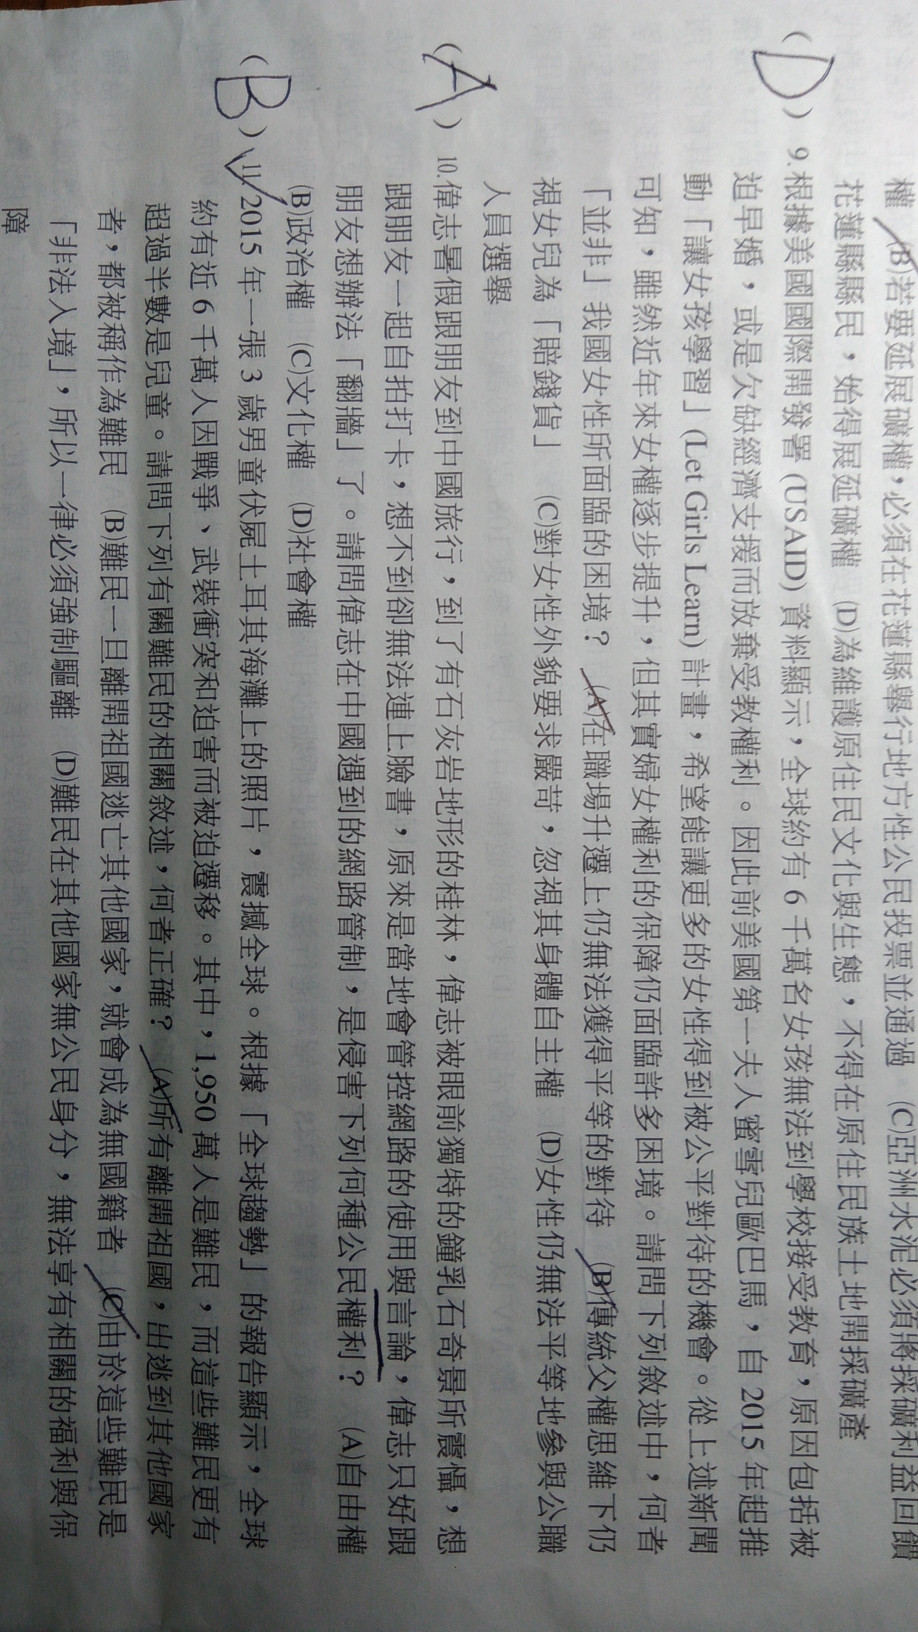 權 (B)若要延展礦權，必須在花蓮縣舉行地方性公民投票並通過 (C)亞洲水泥必須將採礦利益回饋
花蓮縣縣民，始得展延礦權 (D)為維護原住民文化與生態，不得在原住民族土地開採礦產
(D) 9.根據美國國際開發署 (USAID) 資料顯示，全球約有 6 千萬名女孩無法到學校接受教育，原因包括被
迫早婚，或是欠缺經濟支援而放棄受教權利。因此前美國第一夫人蜜雪兒歐巴馬，自 2015 年起推
動「讓女孩學習」(Let Girls Learn) 計畫，希望能讓更多的女性得到被公平對待的機會。從上述新聞
可知，雖然近年來女權逐步提升，但其實婦女權利的保障仍面臨許多困境。請問下列敘述中，何者
「並非」我國女性所面臨的困境？ (A)在職場升遷上仍無法獲得平等的對待 (B)傳統父權思維下仍
視女兒為「賠錢貨」 (C)對女性外貌要求嚴苛，忽視其身體自主權 (D)女性仍無法平等地參與公職
人員選舉
(A) 10.偉志暑假跟朋友到中國旅行，到了有石灰岩地形的桂林，偉志被眼前獨特的鐘乳石奇景所震懾，想
跟朋友一起自拍打卡，想不到卻無法連上臉書，原來是當地會管控網路的使用與言論，偉志只好跟
朋友想辦法「翻牆」了。請問偉志在中國遇到的網路管制，是侵害下列何種公民權利？ (A)自由權
(B)政治權 (C)文化權 (D)社會權
(B) 11.2015 年一張 3 歲男童伏屍土耳其海灘上的照片，震撼全球。根據「全球趨勢」的報告顯示，全球
約有近 6 千萬人因戰爭、武裝衝突和迫害而被迫遷移。其中，1,950 萬人是難民，而這些難民更有
超過半數是兒童。請問下列有關難民的相關敘述，何者正確？ (A)所有離開祖國，出逃到其他國家
者，都被稱作為難民 (B)難民一旦離開祖國逃亡其他國家，就會成為無國籍者 (C)由於這些難民是
「非法入境」，所以一律必須強制驅離 (D)難民在其他國家無公民身分，無法享有相關的福利與保
障